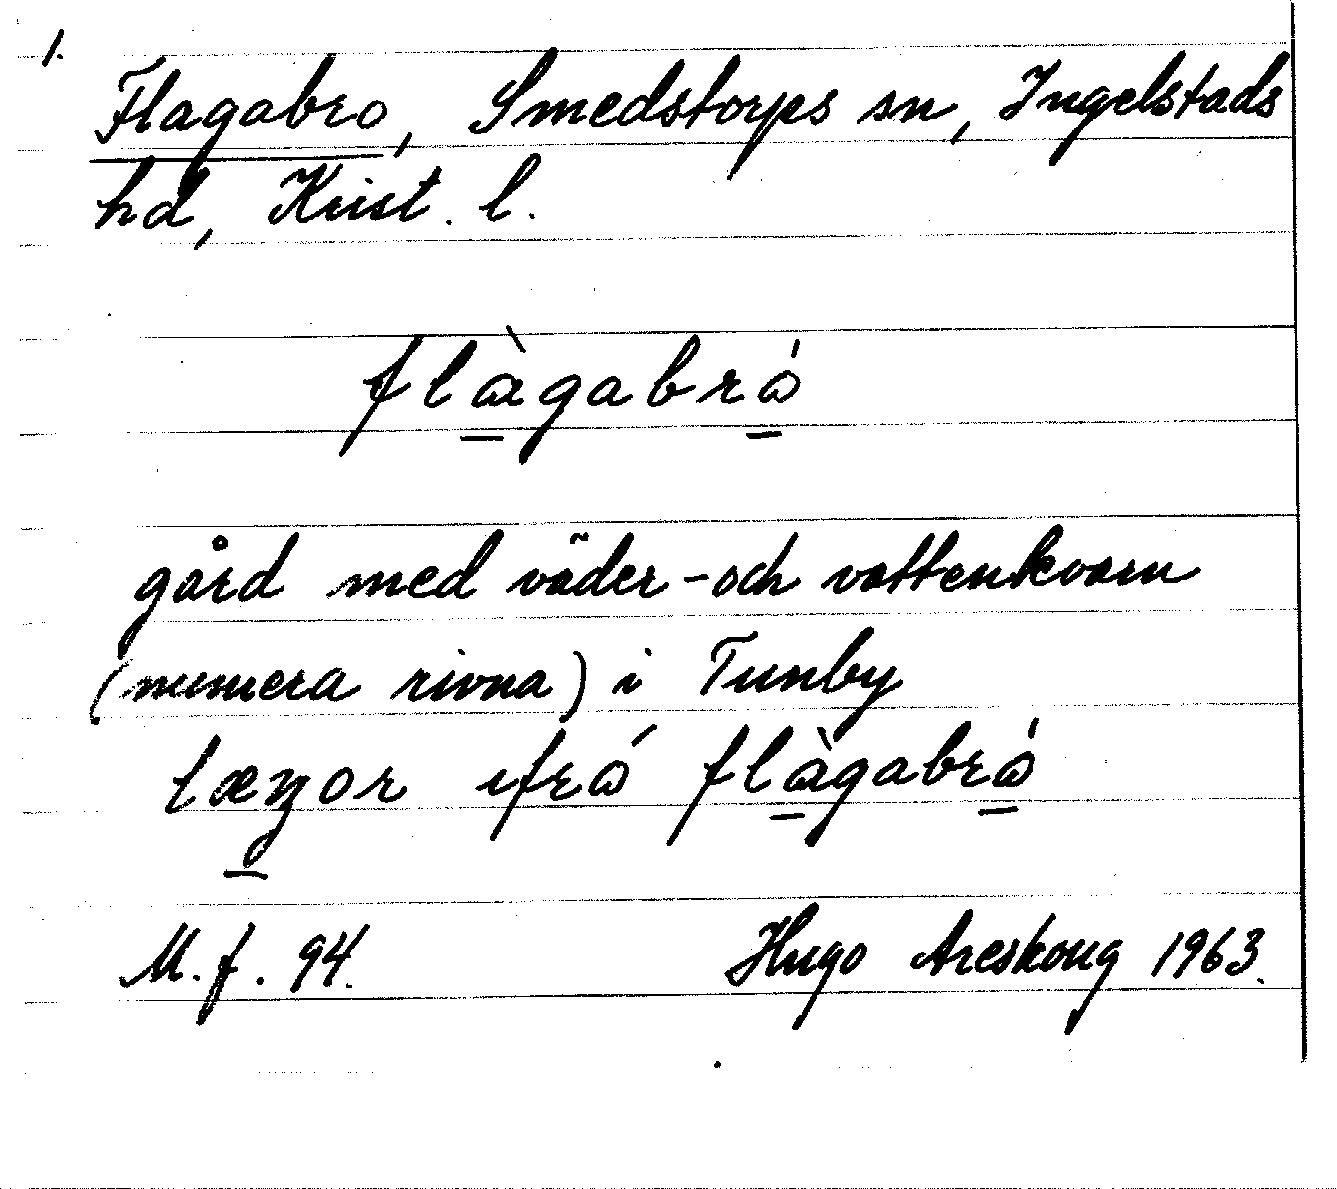 1.
Flagabro, Smedstorps sn, Ingelstads
hd, Krist. l.
flàgabró
gård med väder- och vattenkvarn
(numera rivna) i Tunby
ifrå flàgabró
M.f. 94. Hugo Areskoug 1963.